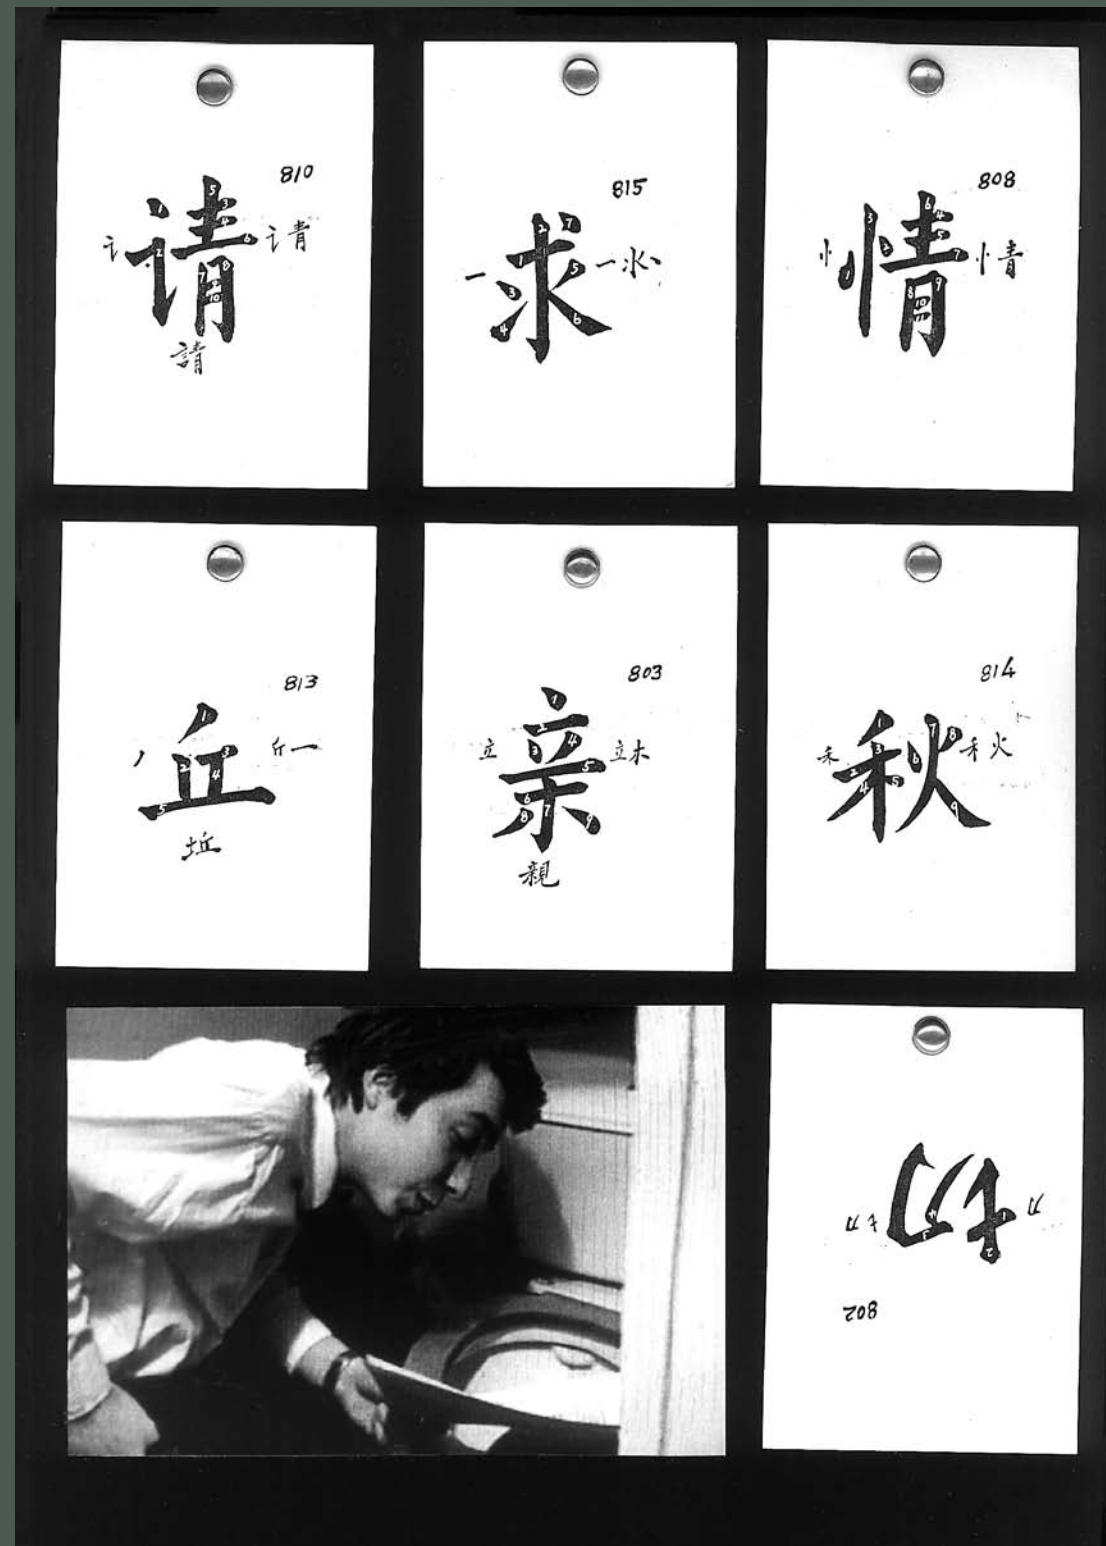 810
讠 请 讠青
請
815
一 求 一氺丶
808
忄 情 忄青
813
丿 丘 斤一
坵
803
立 亲 立木
親
814
禾 秋 禾火
802
刀 切 七刀